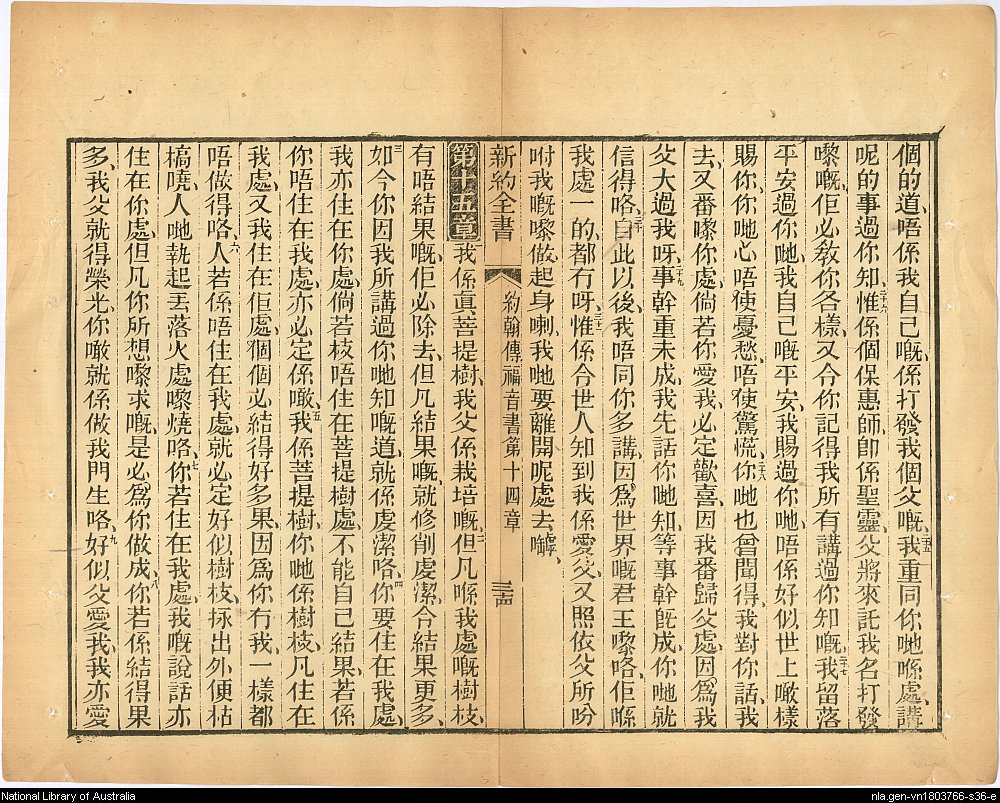 個的道、唔係我自己嘅、係打發我個父嘅、二十五我重同你哋喺處、講
呢的事過你知、二十六惟係個保惠師、卽係聖靈、父將來託我名打發
嚟嘅、佢必敎你各樣、又令你記得我所有講過你知嘅、二十七我留落
平安過你哋、我自己嘅平安、我賜過你哋、唔係好似世上噉樣
賜你、你哋心唔使憂愁、唔使驚慌、二十八你哋也曾聞得、我對你話、我
去、又番嚟你處、倘若你愛我、必定歡喜、因我番歸父處、因爲我
父大過我呀、二十九事幹重未成、我先話你哋知、等事幹旣成、你哋就
信得咯、三十自此以後、我唔同你多講、因爲世界嘅君王嚟咯、佢喺
我處一的都冇呀、三十一惟係令世人知到我係愛父、又照依父所吩
咐我嘅嚟做、起身喇、我哋要離開呢處去嚹、
新約全書 約翰傳福音書第十四章 三十四
第十五章 一我係眞菩提樹、我父係栽培嘅、二但凡喺我處嘅樹枝、
有唔結果嘅、佢必除去、但凡結果嘅、就修削虔潔、令結果更多、
三如今你因我所講過你哋知嘅道、就係虔潔咯、四你要住在我處、
我亦住在你處、倘若枝唔住在菩提樹處、不能自己結果、若係
你唔住在我處、亦必定係噉、五我係菩提樹、你哋係樹枝、凡住在
我處、又我住在佢處、個個必結得好多果、因爲你冇我、一樣都
唔做得咯、六人若係唔住在我處、就必定好似樹枝、捸出外便枯
槁嘵、人哋執起丟落火處嚟燒咯、七你若住在我處、我嘅說話亦
住在你處、但凡你所想嚟求嘅、是必爲你做成、八你若係結得果
多、我父就得榮光、你噉就係做我門生咯、九好似父愛我、我亦愛
National Library of Australia
nla.gen-vn1803766-s36-e